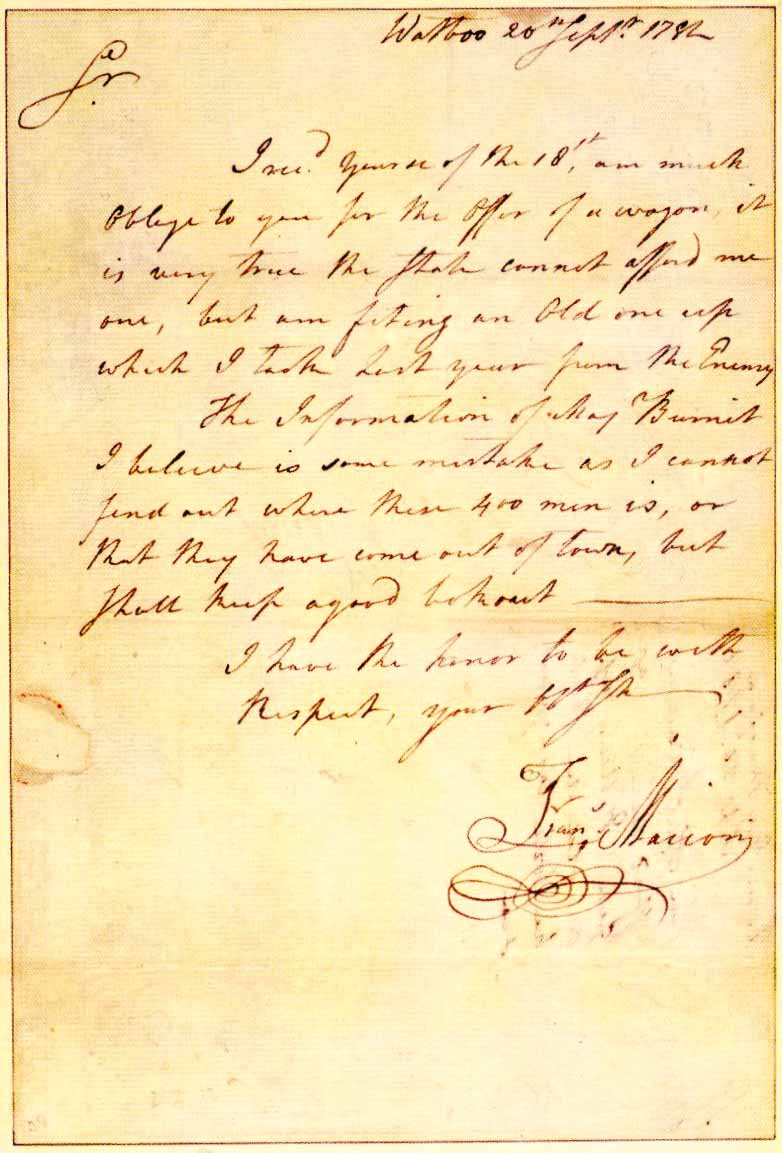 Watboo 20th Septr. 1782
Sr
I recd. yours of the 18th, am much
Oblige to you for the Offer of a wagon, it
is very true the State cannot afford me
one, but am fiting an Old one up
which I took last year from the Enemy
The Information of Maj Burnit
I beleive is some mistake as I cannot
find out where these 400 men is, or
that they have come out of town, but
shall keep a good lookout
I have the honor to be with
Respect, your
Fran. Marion